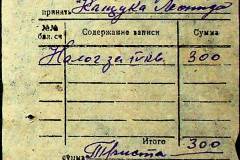 принять Кащука Леонида
№№ бал. сч. Содержание записи Сумма
Налог за III кв. 300
Итого 300
сумма Триста